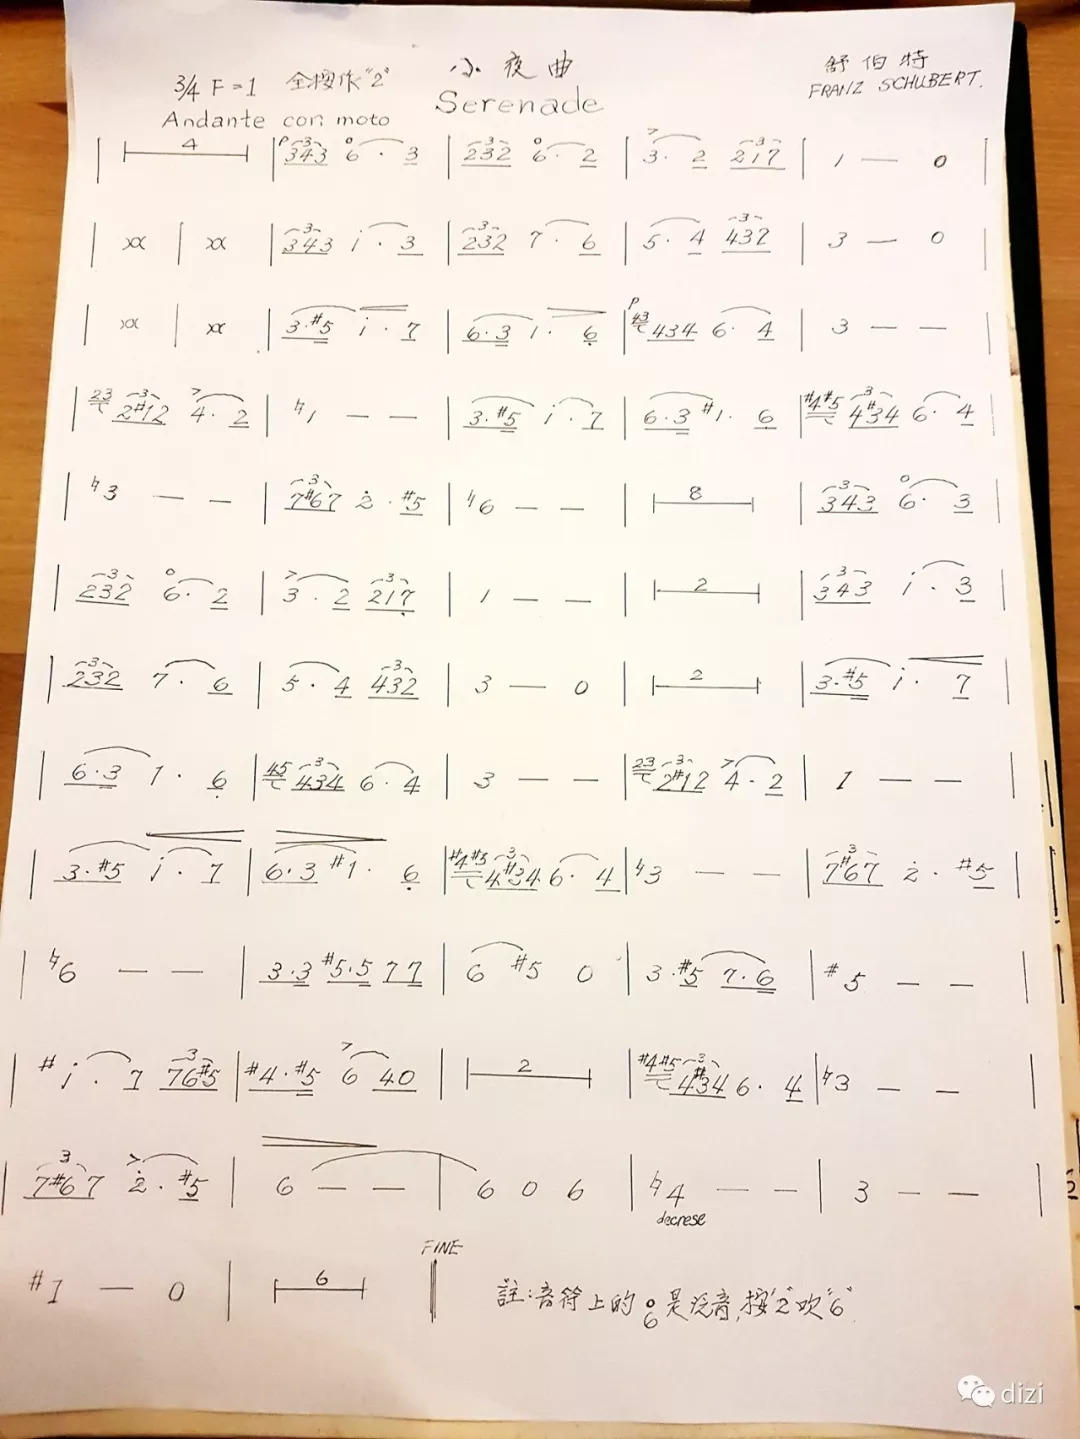 小夜曲
舒伯特
3/4 F=1 全按作"2"
Serenade
FRANZ SCHUBERT.
Andante con moto
| 4 | p 343 6 · 3 | 232 6 · 2 | > 3 · 2 217 | 1 — 0 |
| xx | xx | 343 i · 3 | 232 7 · 6 | 5 · 4 432 | 3 — 0 |
| xx | xx | 3·#5 i · 7 | 6·3 1 · 6 | p 43 434 6 · 4 | 3 — — |
| 23 2#12 > 4 · 2 | ♮1 — — | 3·#5 i · 7 | 6·3 #1 · 6 | #4#5 4#34 6 · 4 |
| ♮3 — — | 7#67 2 · #5 | ♮6 — — | 8 | 343 6 · 3 |
| 232 6 · 2 | > 3 · 2 217 | 1 — — | 2 | 343 i · 3 |
| 232 7 · 6 | 5 · 4 432 | 3 — 0 | 2 | 3·#5 i · 7 |
| 6·3 1 · 6 | 45 434 6 · 4 | 3 — — | 23 2#12 > 4 · 2 | 1 — — |
| 3·#5 i · 7 | 6·3 #1 · 6 | #4#5 4#34 6 · 4 | ♮3 — — | 7#67 2 · #5 |
| ♮6 — — | 3·3 #5·5 77 | 6 #5 0 | 3·#5 7·6 | #5 — — |
| #i · 7 76#5 | #4·#5 > 6 40 | 2 | #4#5 4#34 6 · 4 | ♮3 — — |
| 7#67 > 2 · #5 | 6 — — | 6 0 6 | ♮4 — — | 3 — — |
decrese
FINE
#1 — 0 | 6 ‖
註:音符上的 6 是泛音,按"2"吹"6"
dizi